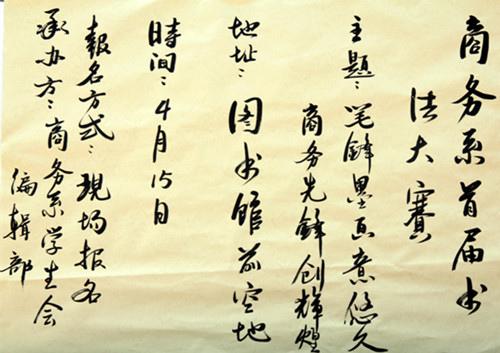 商务系首届书
法大赛
主题：笔锋墨画意悠久
商务先锋创辉煌
地址：图书馆前空地
時间：4月15日
報名方式：現场报名
承办方：商务系学生会
编辑部